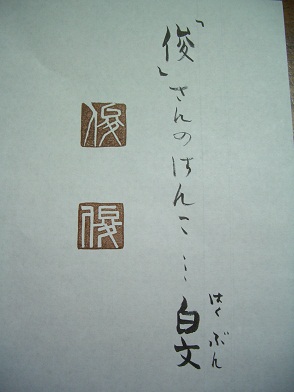 「俊」さんのはんこ…白文
はくぶん
俊
俊